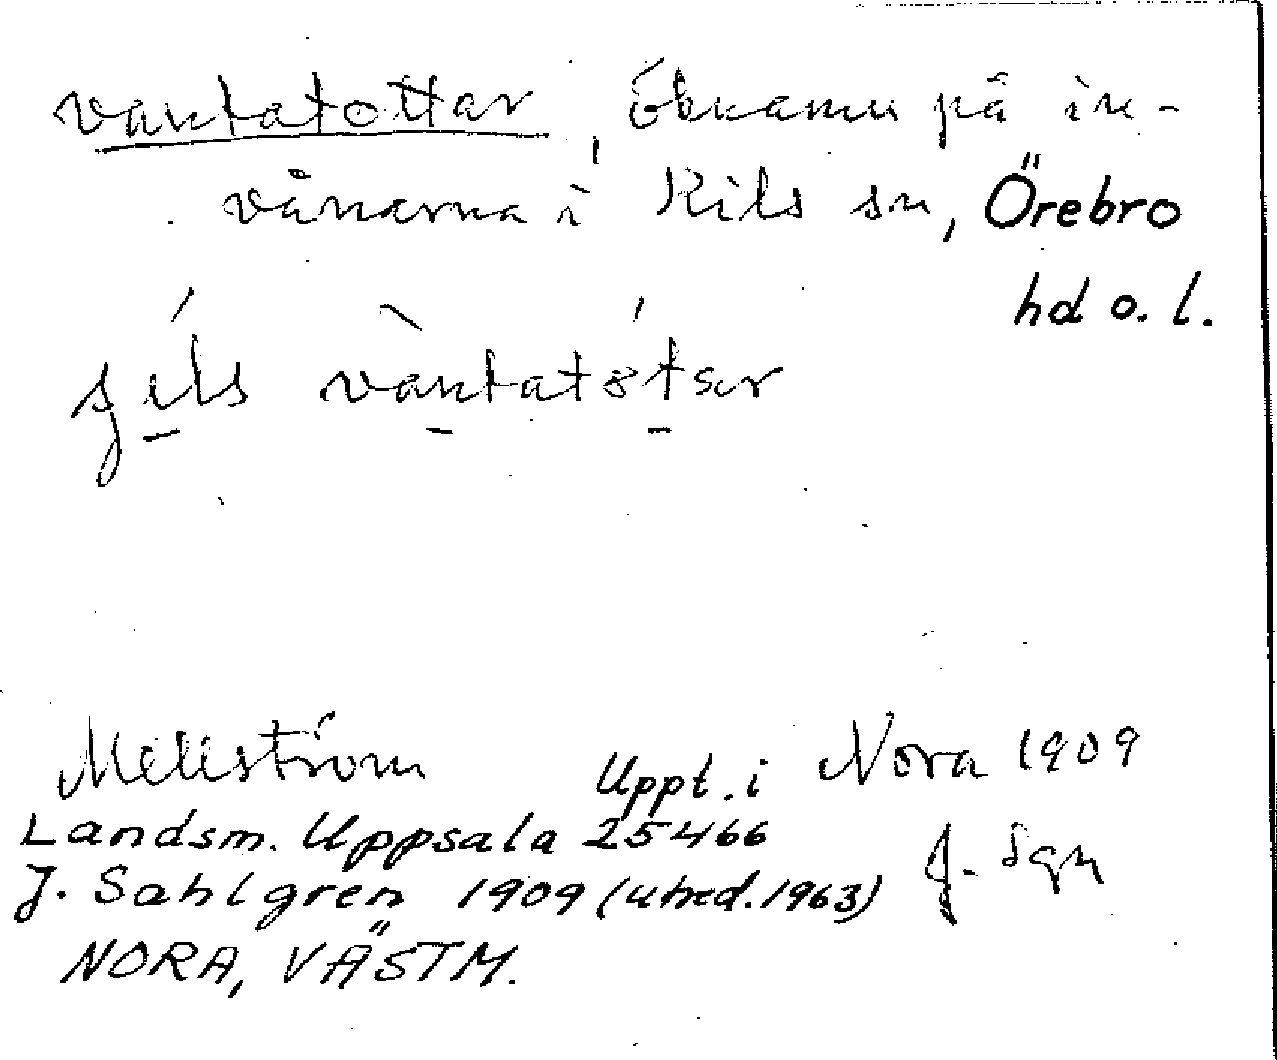 vantatottar, öknamn på in-
vånarna i Kils sn, Örebro
hd o. l.
Mellström Uppt. i Nora 1909
Landsm. Uppsala 25466 J. Sgn
J. Sahlgren 1909 (utred. 1963)
NORA, VÄSTM.